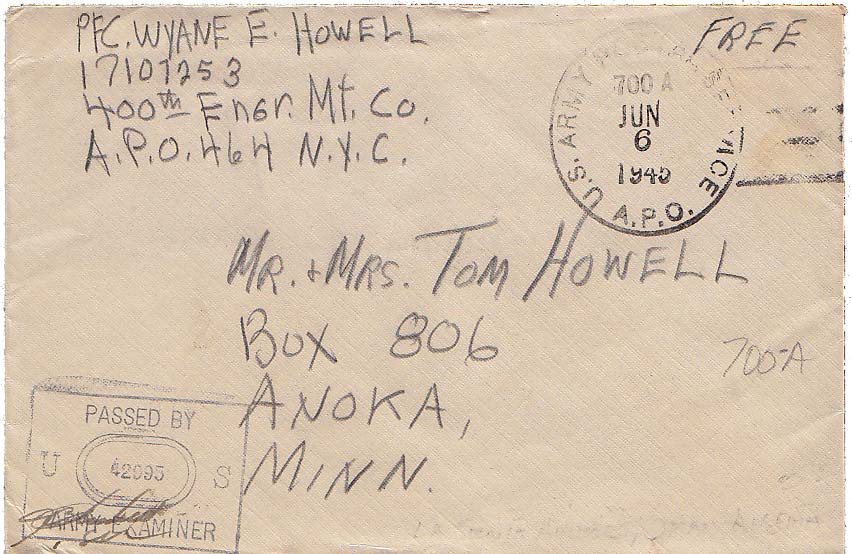 PFC. WYANE E. HOWELL
17107253
400th Engr. Mt. Co.
A.P.O. 464 N.Y.C.
FREE
U.S. ARMY SERVICE
700 A
JUN
6
194
A.P.O.
MR. + MRS. TOM HOWELL
BOX 806
ANOKA,
MINN.
700-A
PASSED BY
U 42095 S
ARMY EXAMINER